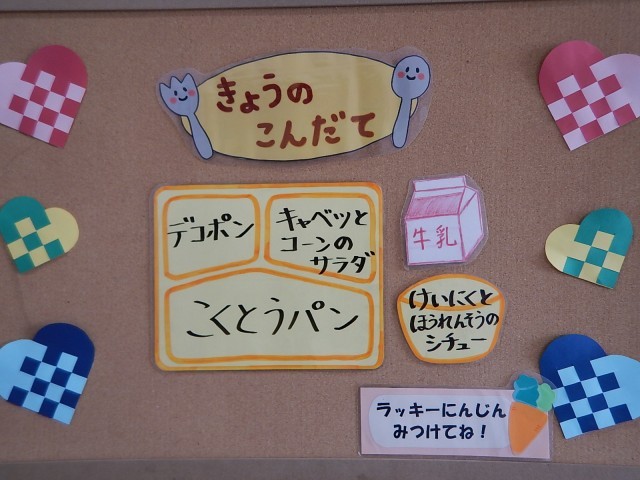 きょうの
こんだて
デコポン
キャベツと
コーンの
サラダ
こくとうパン
牛乳
けいにくと
ほうれんそうの
シチュー
ラッキーにんじん
みつけてね！